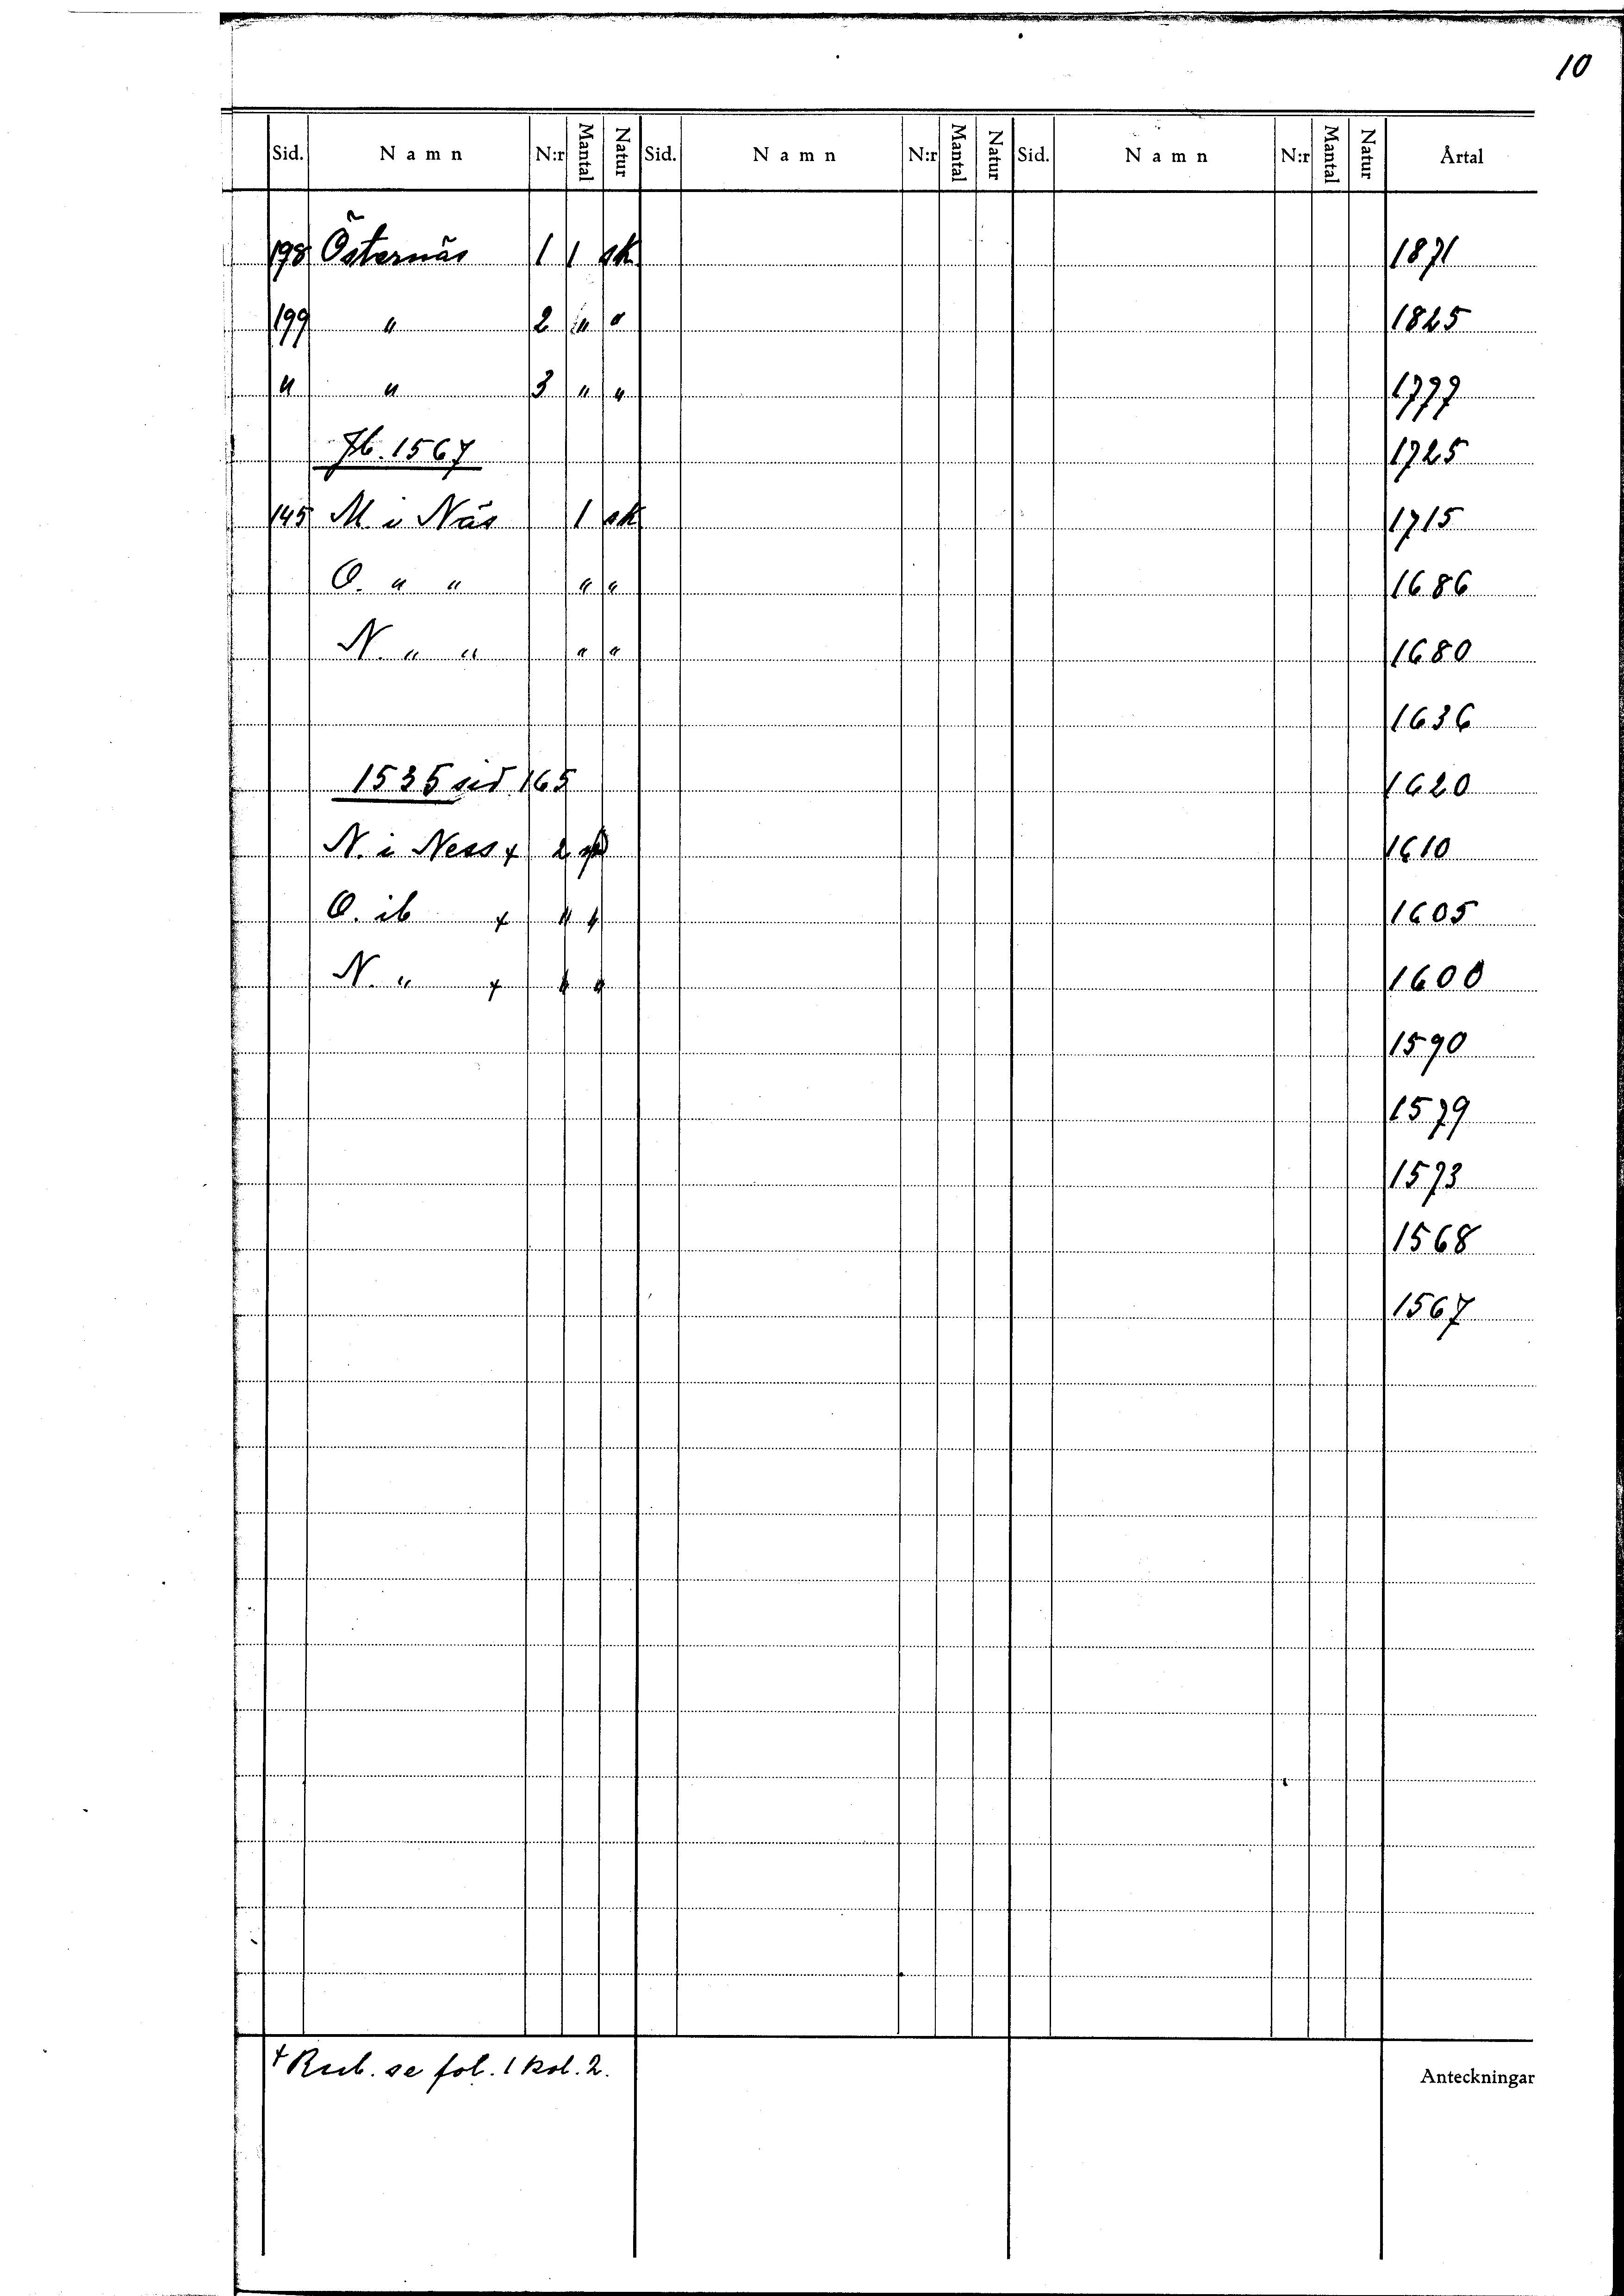 10
Sid. Namn N:r Mantal Natur Sid. Namn N:r Mantal Natur Sid. Namn N:r Mantal Natur Årtal
198 Östernäs 1 1 sk 1871
199 " 2 " " 1825
" " 3 " " 1777
Jb. 1567 1725
145 M. i Näs 1 sk 1715
O. " " " " 1686
N. " " " " 1680
1636
1535 sid 165 1620
N. i Ness + 2 1610
O. ib + " " 1605
N. " + " " 1600
1590
1579
1573
1568
1567
+ Rub. se fol. 1 kol. 2.
Anteckningar